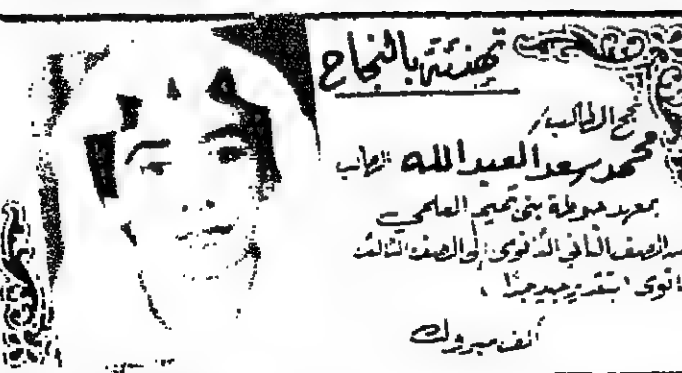 تهنئة بالنجاح
نجح الطالب /
محمد سعد العبدالله
بمعهد حوطة بني تميم العلمي
من الصف الثاني الثانوي إلى الصف الثالث
ثانوي بتقدير جيد جدًا
ألف مبروك